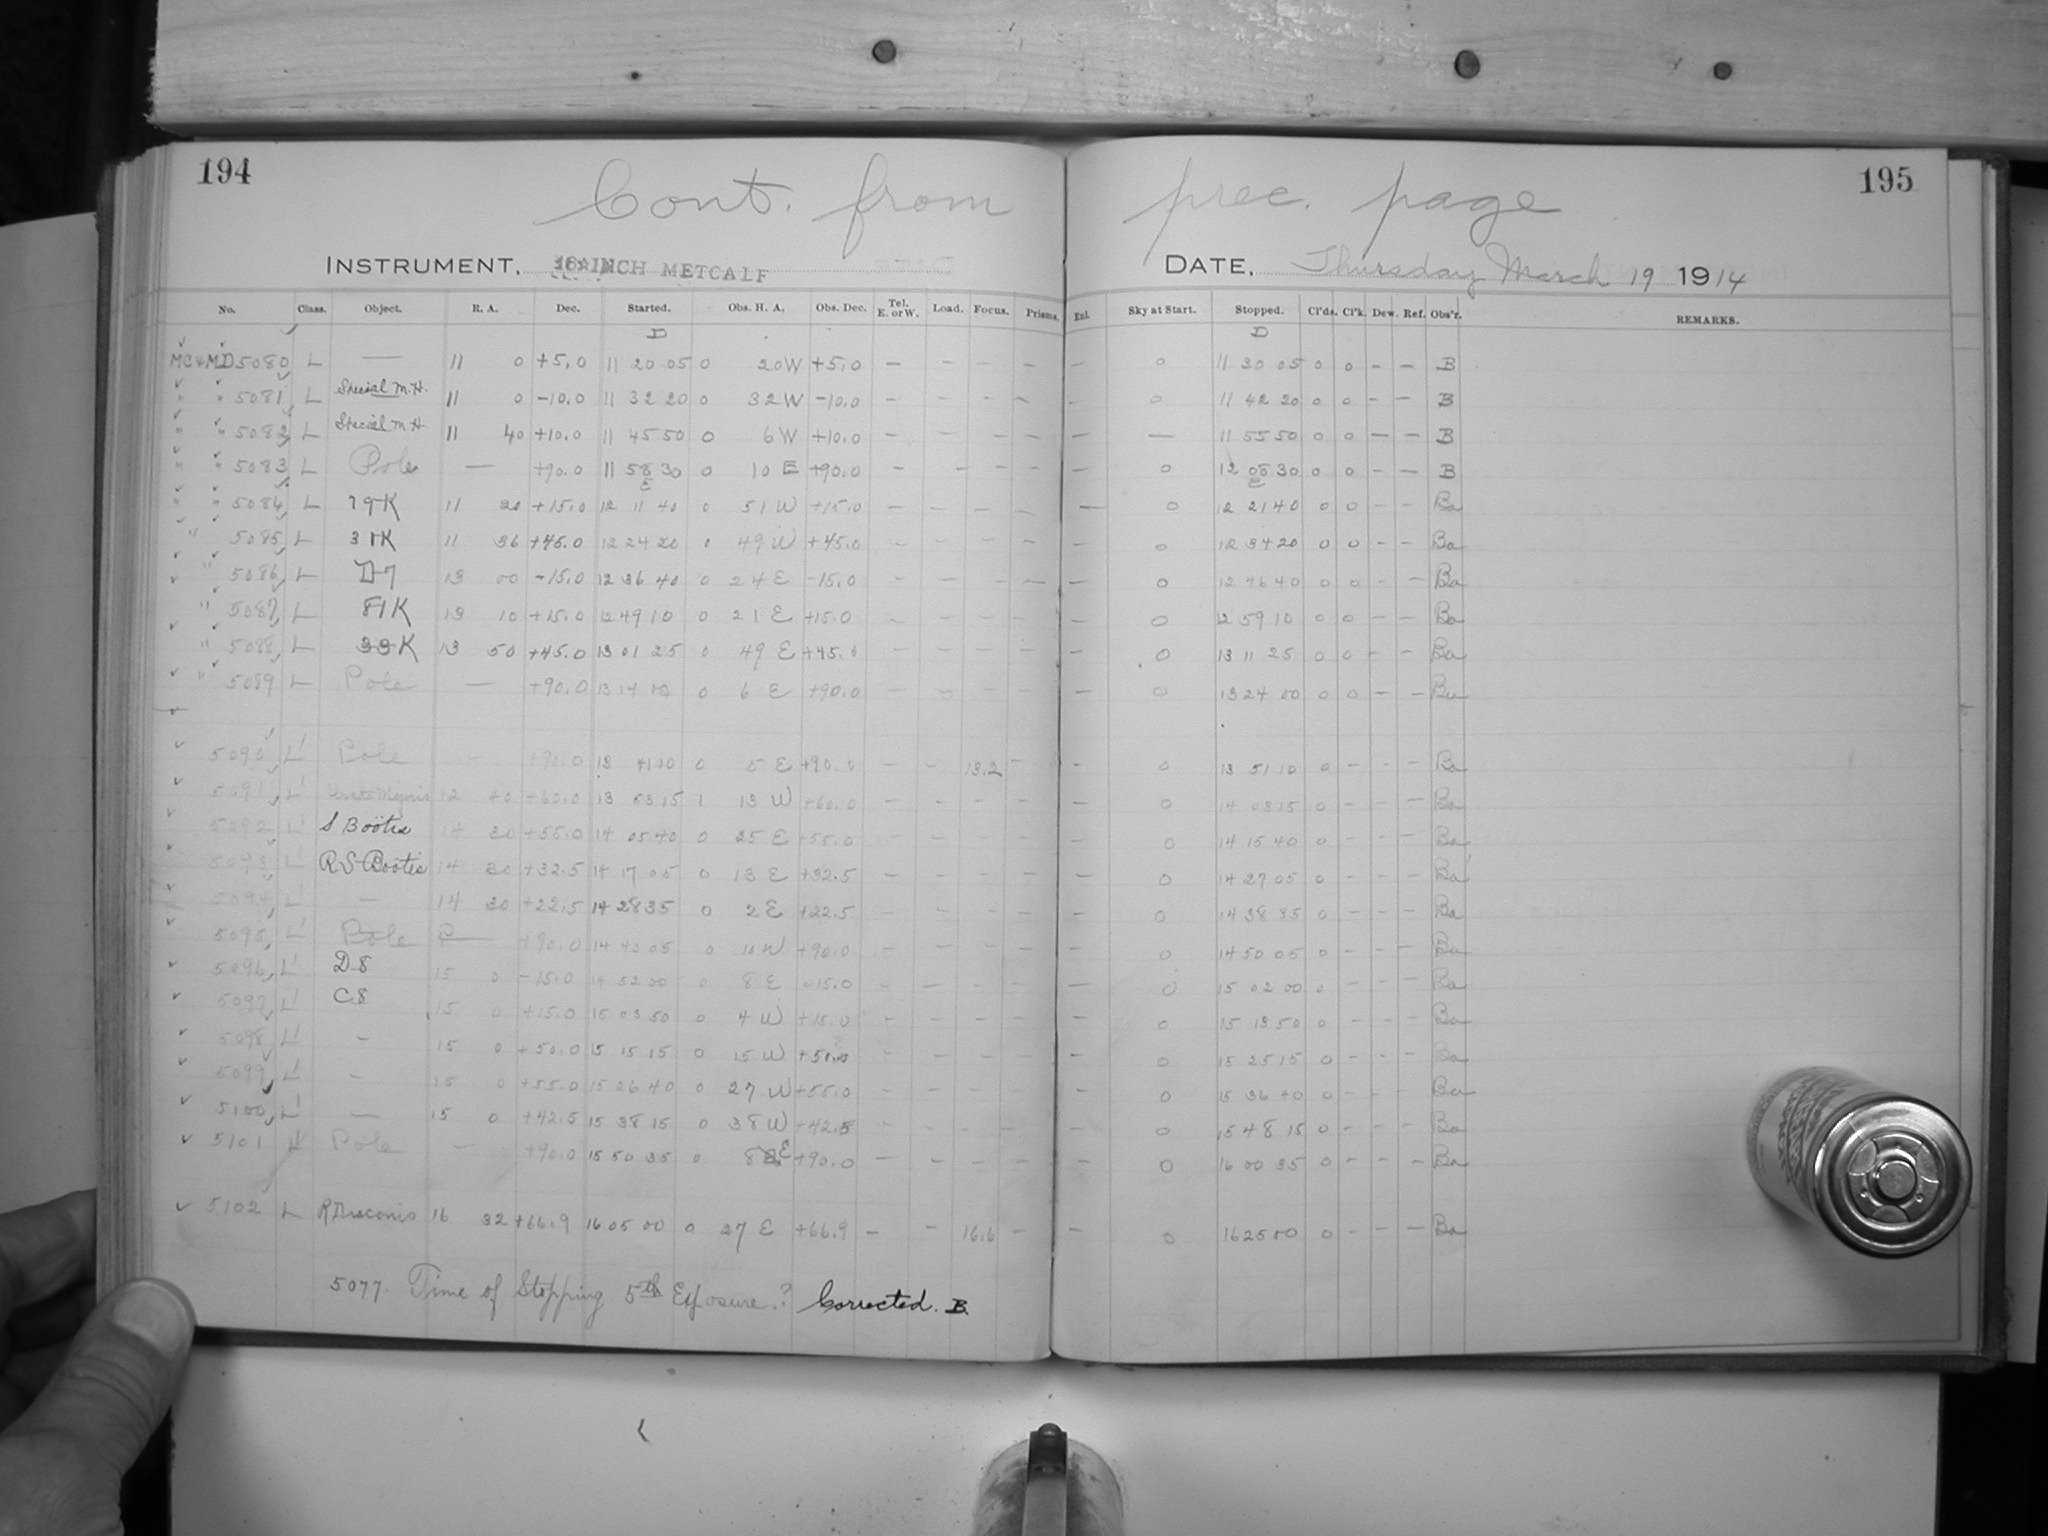 194
195
Cont. from prec. page
INSTRUMENT, 16 INCH METCALF
DATE, Thursday March 19 1914
No. Class. Object. R. A. Dec. Started. Obs. H. A. Obs. Dec. Tel. E. or W. Load. Focus. Prisms. Exl. Sky at Start. Stopped. Cl'ds. Cl'k. Dew. Ref. Obs'r. REMARKS.
D D
MC & MD 5080 L — 11 0 +5.0 11 20 05 0 20 W +5.0 — — — — — 0 11 30 05 0 0 — — B
" " 5081 L Special M.H. 11 0 -10.0 11 32 20 0 32 W -10.0 — — — — — 0 11 42 20 0 0 — — B
" " 5082 L Special M.H. 11 40 +10.0 11 45 50 0 6 W +10.0 — — — — — — 11 55 50 0 0 — — B
" " 5083 L Pole — +90.0 11 58 30 0 10 E +90.0 — — — — — 0 12 08 30 0 0 — — B
E E
" " 5084 L 79K 11 20 +15.0 12 11 40 0 51 W +15.0 — — — — — 0 12 21 40 0 0 — — Ba
" 5085 L 31K 11 36 +45.0 12 24 20 0 49 W +45.0 — — — — — 0 12 34 20 0 0 — — Ba
" 5086 L D7 13 00 -15.0 12 36 40 0 24 E -15.0 — — — — — 0 12 46 40 0 0 — — Ba
" 5087 L 81K 13 10 +15.0 12 49 10 0 21 E +15.0 — — — — — 0 12 59 10 0 0 — — Ba
" 5088 L 33K 13 50 +45.0 13 01 25 0 49 E +45.0 — — — — — 0 13 11 25 0 0 — — Ba
" 5089 L Pole — +90.0 13 14 00 0 6 E +90.0 — — — — — 0 13 24 00 0 0 — — Ba
5090 L' Pole — +90.0 13 41 10 0 5 E +90.0 — — 13.2 — — 0 13 51 10 0 — — — Ba
5091 L' Ursae Majoris 12 40 +60.0 13 53 15 1 13 W +60.0 — — — — — 0 14 03 15 0 — — — Ba
5092 L' S Boötis 14 20 +55.0 14 05 40 0 25 E +55.0 — — — — — 0 14 15 40 0 — — — Ba
5093 L' RS Boötis 14 30 +32.5 14 17 05 0 13 E +32.5 — — — — — 0 14 27 05 0 — — — Ba
5094 L' — 14 30 +22.5 14 28 35 0 2 E +22.5 — — — — — 0 14 38 35 0 — — — Ba
5095 L' Pole — +90.0 14 40 05 0 10 W +90.0 — — — — — 0 14 50 05 0 — — — Ba
5096 L' D8 15 0 -15.0 14 52 00 0 8 E -15.0 — — — — — 0 15 02 00 0 — — — Ba
5097 L' C8 15 0 +15.0 15 03 50 0 4 W +15.0 — — — — — 0 15 13 50 0 — — — Ba
5098 L' — 15 0 +50.0 15 15 15 0 15 W +50.0 — — — — — 0 15 25 15 0 — — — Ba
5099 L' — 15 0 +55.0 15 26 40 0 27 W +55.0 — — — — — 0 15 36 40 0 — — — Ba
5100 L' — 15 0 +42.5 15 38 15 0 38 W +42.5 — — — — — 0 15 48 15 0 — — — Ba
5101 L' Pole — +90.0 15 50 35 0 8 E +90.0 — — — — — 0 16 00 35 0 — — — Ba
5102 L R Draconis 16 32 +66.9 16 05 00 0 27 E +66.9 — — 16.6 — — 0 16 25 00 0 — — — Ba
5077. Time of Stopping 5th Exposure.? Corrected. B.